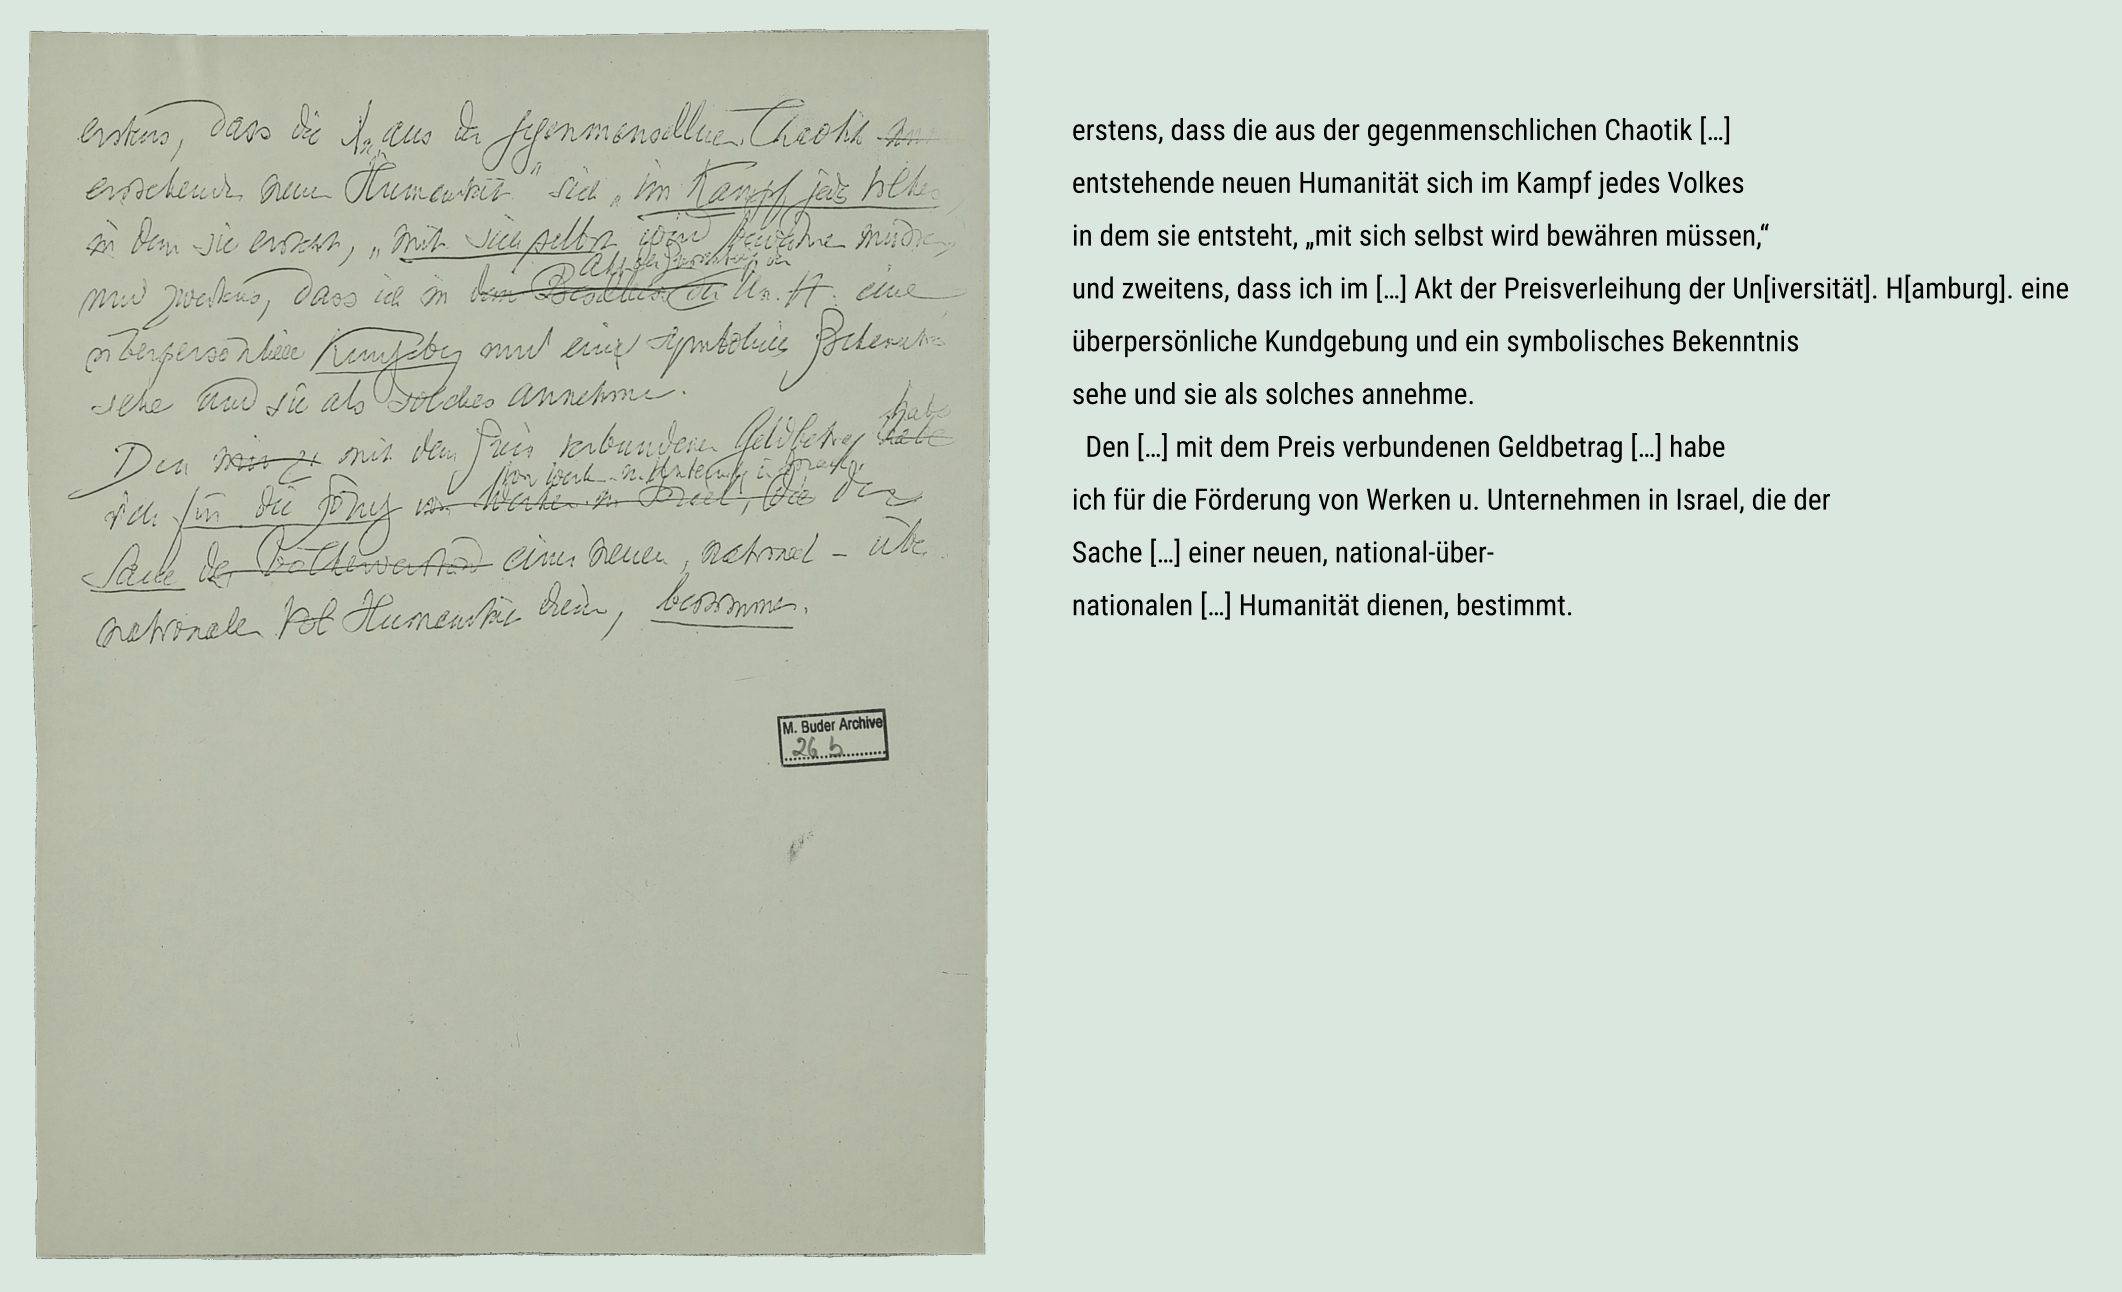 erstens, dass die aus der gegenmenschlichen Chaotik
entstehende neuen Humanität" sich „im Kampf jedes Volkes
in dem sie entsteht, „mit sich selbst wird bewähren müssen,
und zweitens, dass ich in dem Beschluss der Un. H. eine
Akt der
überpersönliche Kundgebung und eine symbolisches Bekenntnis
sehe und sie als solches annehme.
Den mir mit dem Preis verbundenen Geldbetrag habe
habe
ich für die Förderung von Werken in Israel, die der
Sache der eines neuen, national-über
nationalen Humanität dienen, bestimmt.
M. Buder Archive
26 b
erstens, dass die aus der gegenmenschlichen Chaotik […]
entstehende neuen Humanität sich im Kampf jedes Volkes
in dem sie entsteht, „mit sich selbst wird bewähren müssen,“
und zweitens, dass ich im […] Akt der Preisverleihung der Un[iversität]. H[amburg]. eine
überpersönliche Kundgebung und ein symbolisches Bekenntnis
sehe und sie als solches annehme.
Den […] mit dem Preis verbundenen Geldbetrag […] habe
ich für die Förderung von Werken u. Unternehmen in Israel, die der
Sache […] einer neuen, national-über-
nationalen […] Humanität dienen, bestimmt.